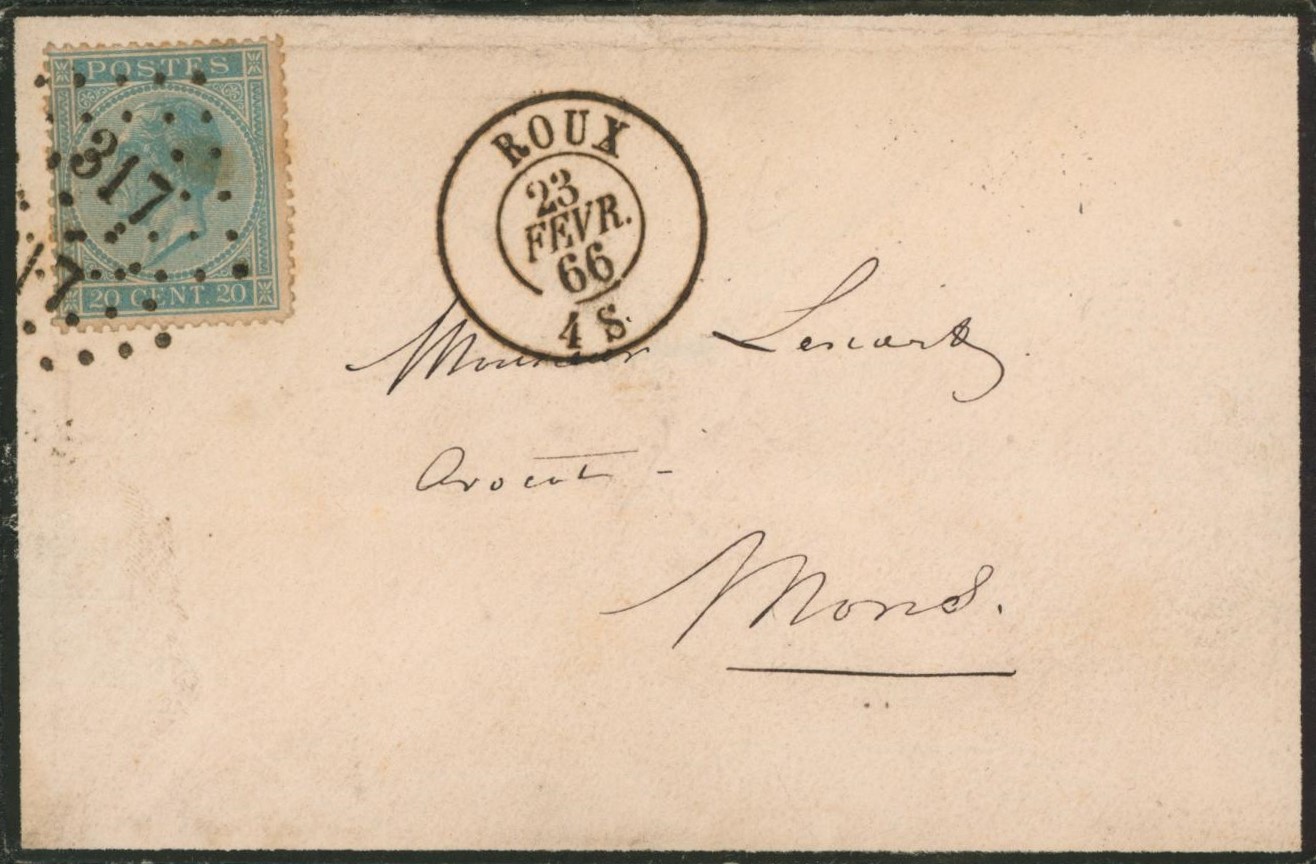 POSTES
317
17
20 CENT. 20
ROUX
23
FEVR.
66
4 S.
Monsieur
Avocat -
Mons.